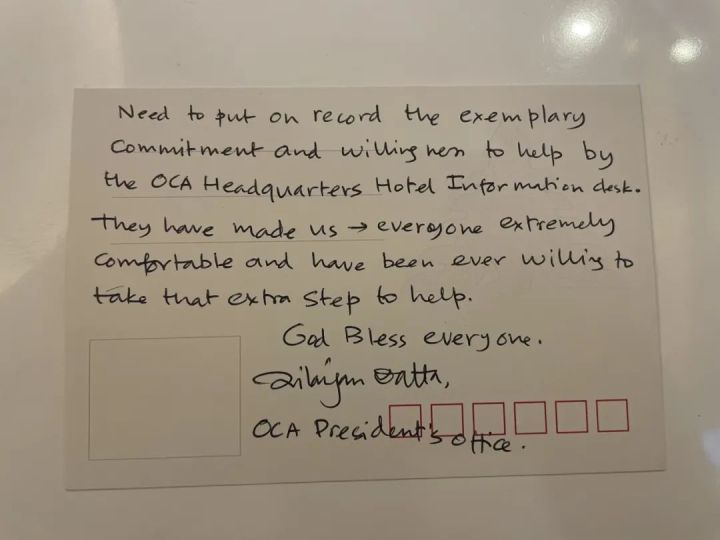 Need to put on record the exemplary
Commitment and willingness to help by
the OCA Headquarters Hotel Information desk.
They have made us → everyone extremely
comfortable and have been ever willing to
take that extra step to help.
God Bless everyone.
Datta,
OCA President's office.